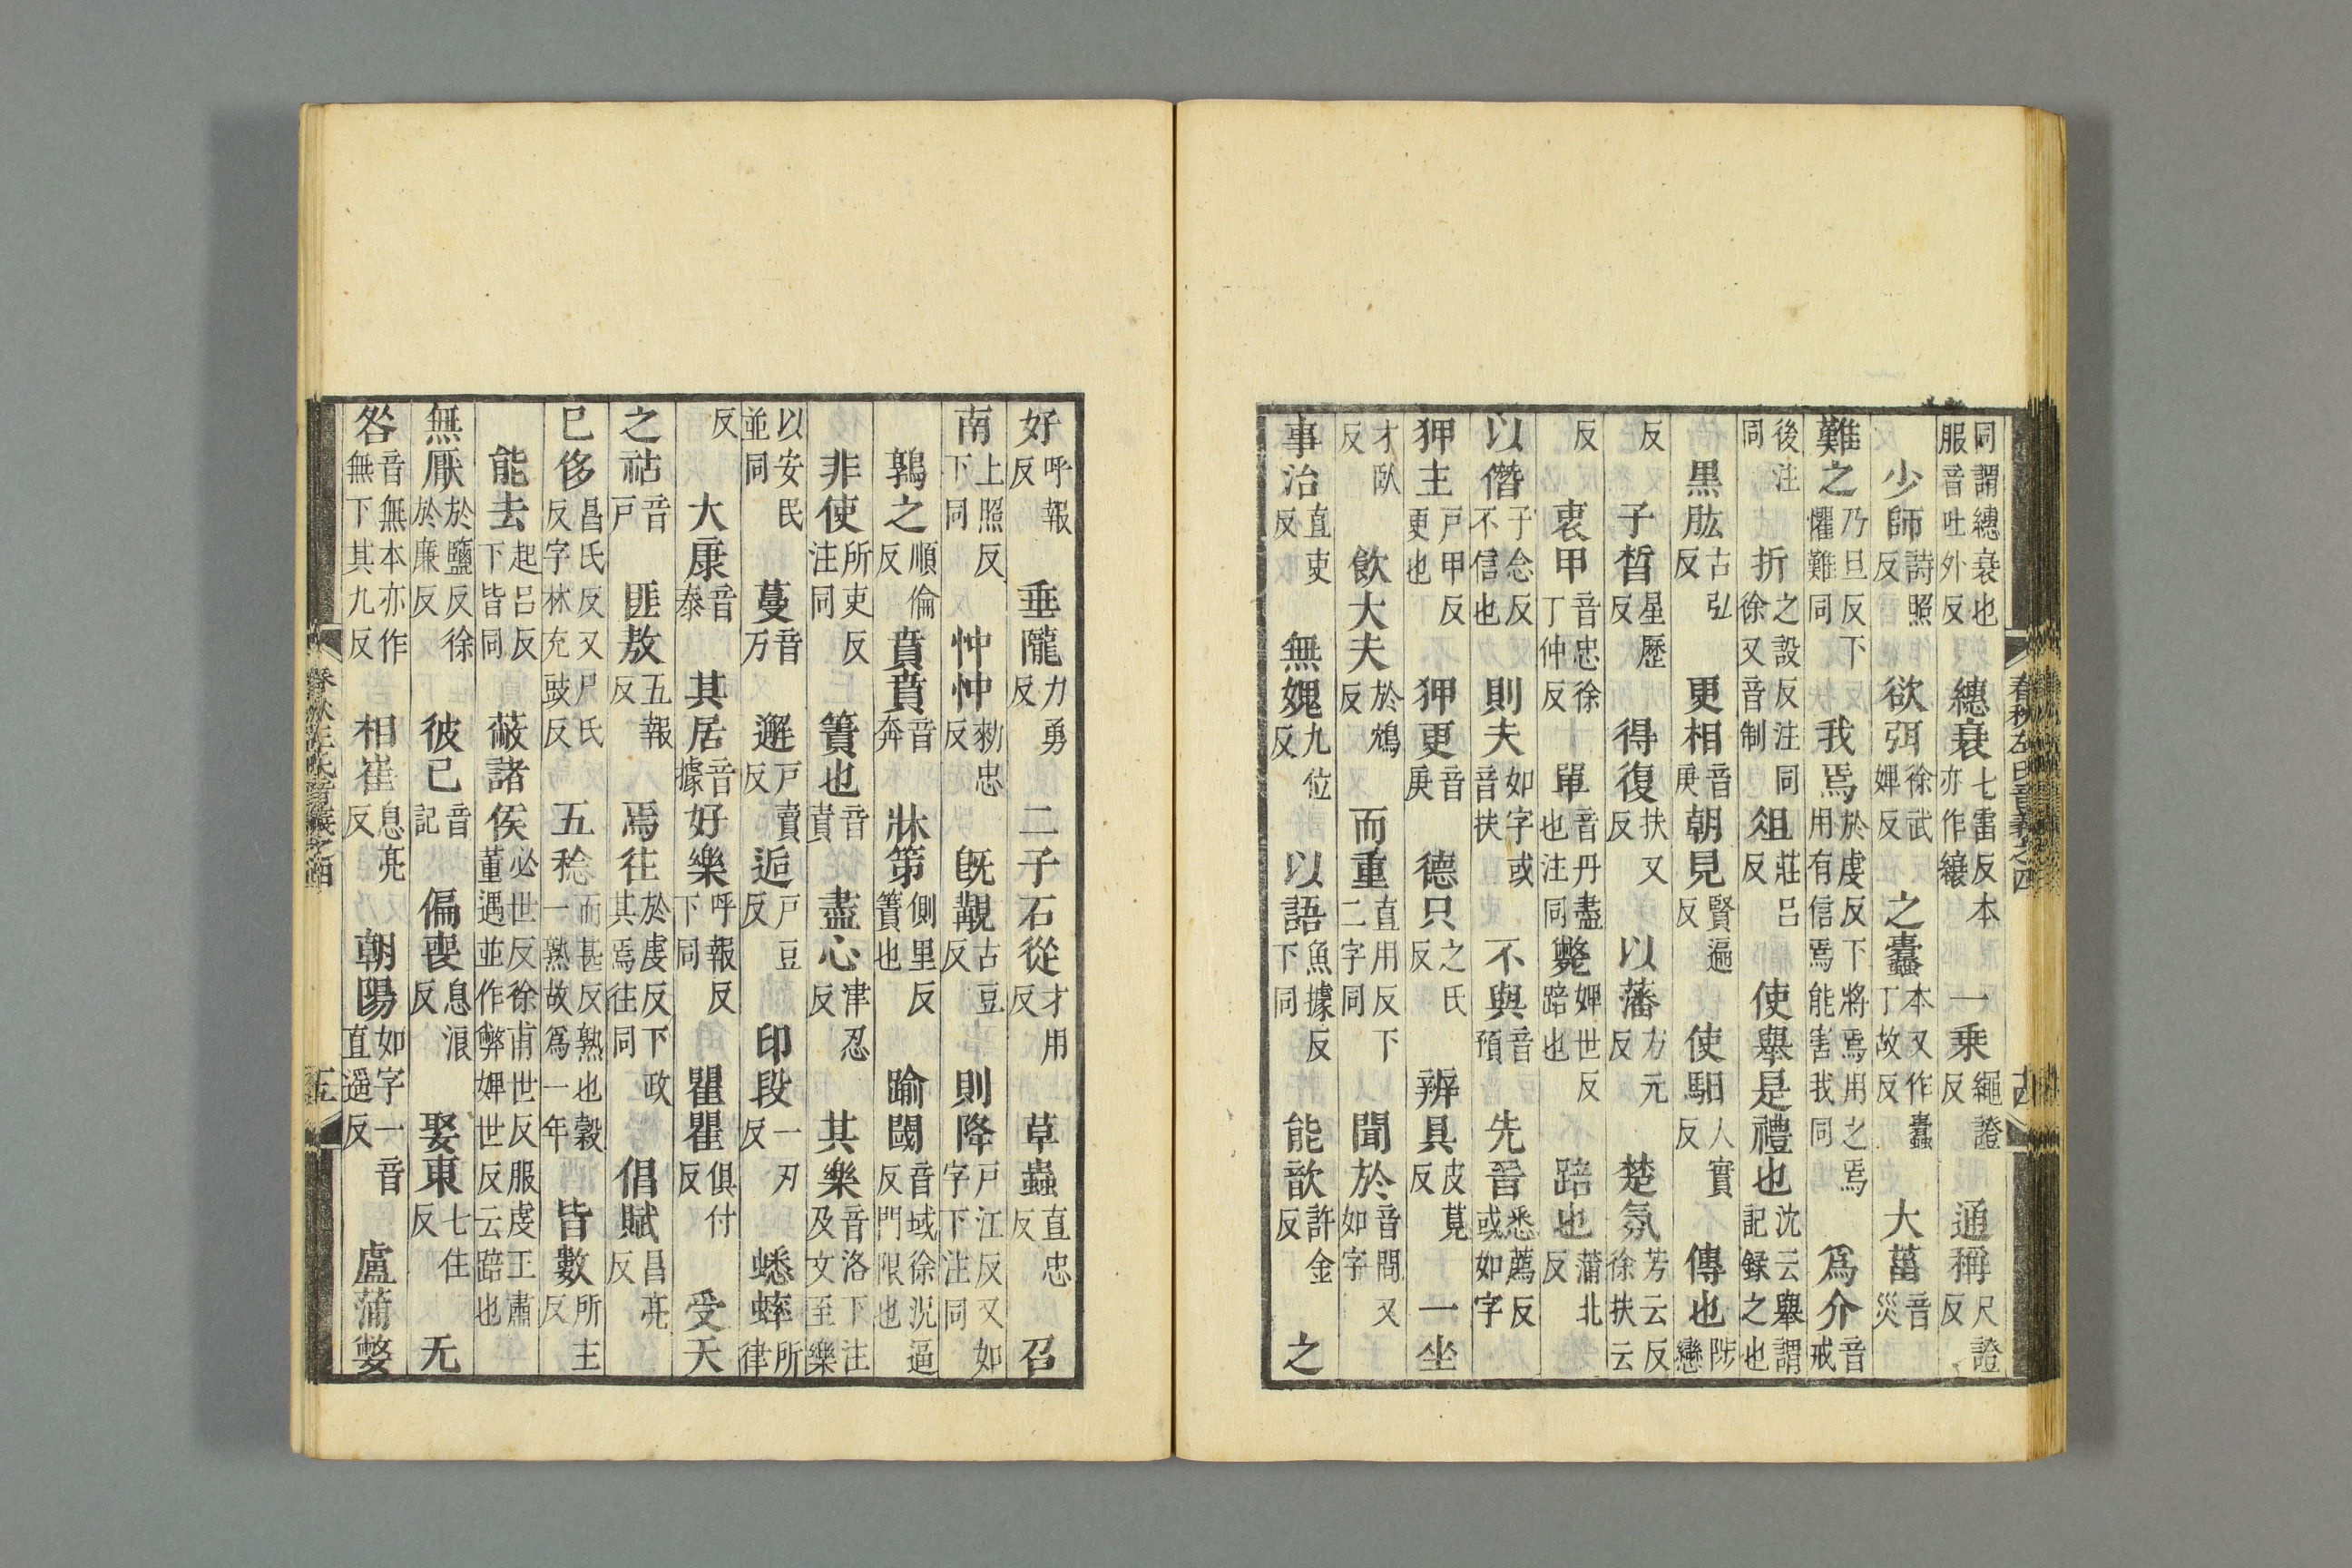 同謂繐衰也服音吐外反 繐衰七雷反本亦作縗 一乘繩證反 通稱尺證反
少師詩照反 欲弭徐武婢反 之蠹本又作螙丁故反 大菑音災
難之乃旦反下懼難同 我焉於虔反下將焉用之焉用有信焉能害我同 爲介音戒
後注同 折之設反注同徐又音制 俎莊呂反 使舉是禮也沈云舉謂記録之也
黒肱古弘反 更相音庚 朝見賢遍反 使馹人實反 傳也陟戀
反 子晳星歷反 得復扶又反 以藩方元反 楚氛芳云反徐扶云
反 衷甲音忠徐丁仲反 單音丹盡也注同 斃婢世反踣也 踣也蒲北反
以僭子念反不信也 則夫如字或音扶 不與音預 先晉悉薦反或如字
狎主戸甲反更也 狎更音庚 德只之氏反 辨具皮莧反 一坐
才臥反 飲大夫於鴆反 而重直用反下二字同 聞於音問又如字
事治直吏反 無媿九位反 以語魚據反下同 能歆許金反 之
春秋左氏音義之四
好呼報反 垂隴力勇反 二子石從才用反 草蟲直忠反 召
南上照反下同 忡忡勑忠反 既覯古豆反 則降戸江反又如字下注同
鶉之順倫反 賁賁音奔 牀笫側里反簀也 踰閾音域徐況逼反門限也
非使所吏反注同 簀也音責 盡心津忍反 其樂音洛下注及文至樂
以安民並同 蔓音万 邂戸賣反 逅戸豆反 印段一刃反 蟋蟀所律
反 大康音泰 其居音據 好樂呼報反下同 瞿瞿俱付反 受天
之祜音戸 匪敖五報反 焉往於虔反下政其焉往同 倡賦昌亮反
已侈昌氏反又尸氏反字林充豉反 五稔而甚反熟也穀一熟故爲一年 皆數所主反
能去起呂反下皆同 蔽諸侯必世反徐甫世反服虔王肅董遇並作弊婢世反云踣也
無厭於鹽反徐於廉反 彼己音記 偏喪息浪反 娶東七住反 无
咎音無本亦作無下其九反 相崔息亮反 朝陽如字一音直遥反 盧蒲嫳
春秋左氏音義之四 五